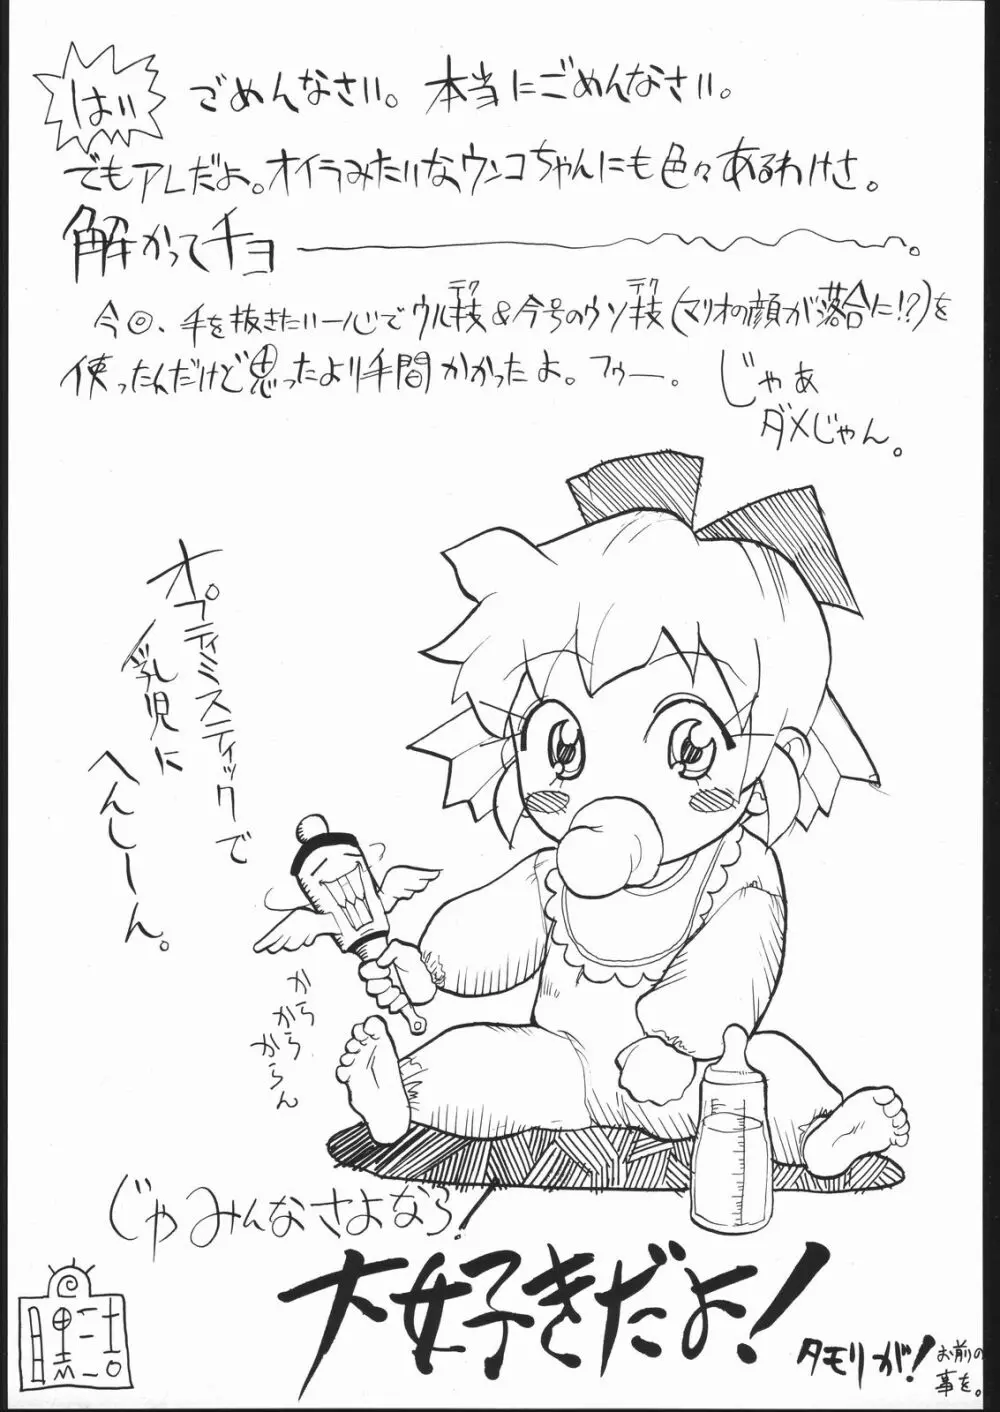 はい ごめんなさい。本当にごめんなさい。
でもアレだよ。オイラみたいなウンコちゃんにも色々あるわけさ。
解かってチョ———。
今回、手を抜きたい一心でウル技テク&今号のウソ技テク(マリオの顔が落合に!?)を
使ったんだけど思ったより手間かかったよ。フゥー。
じゃあ
ダメじゃん。
オプティミスティックで
乳児に
へんしーん。
からら
からら
からん
じゃみんなさよなら!
大好きだよ!
タモリが!
お前の
事を。